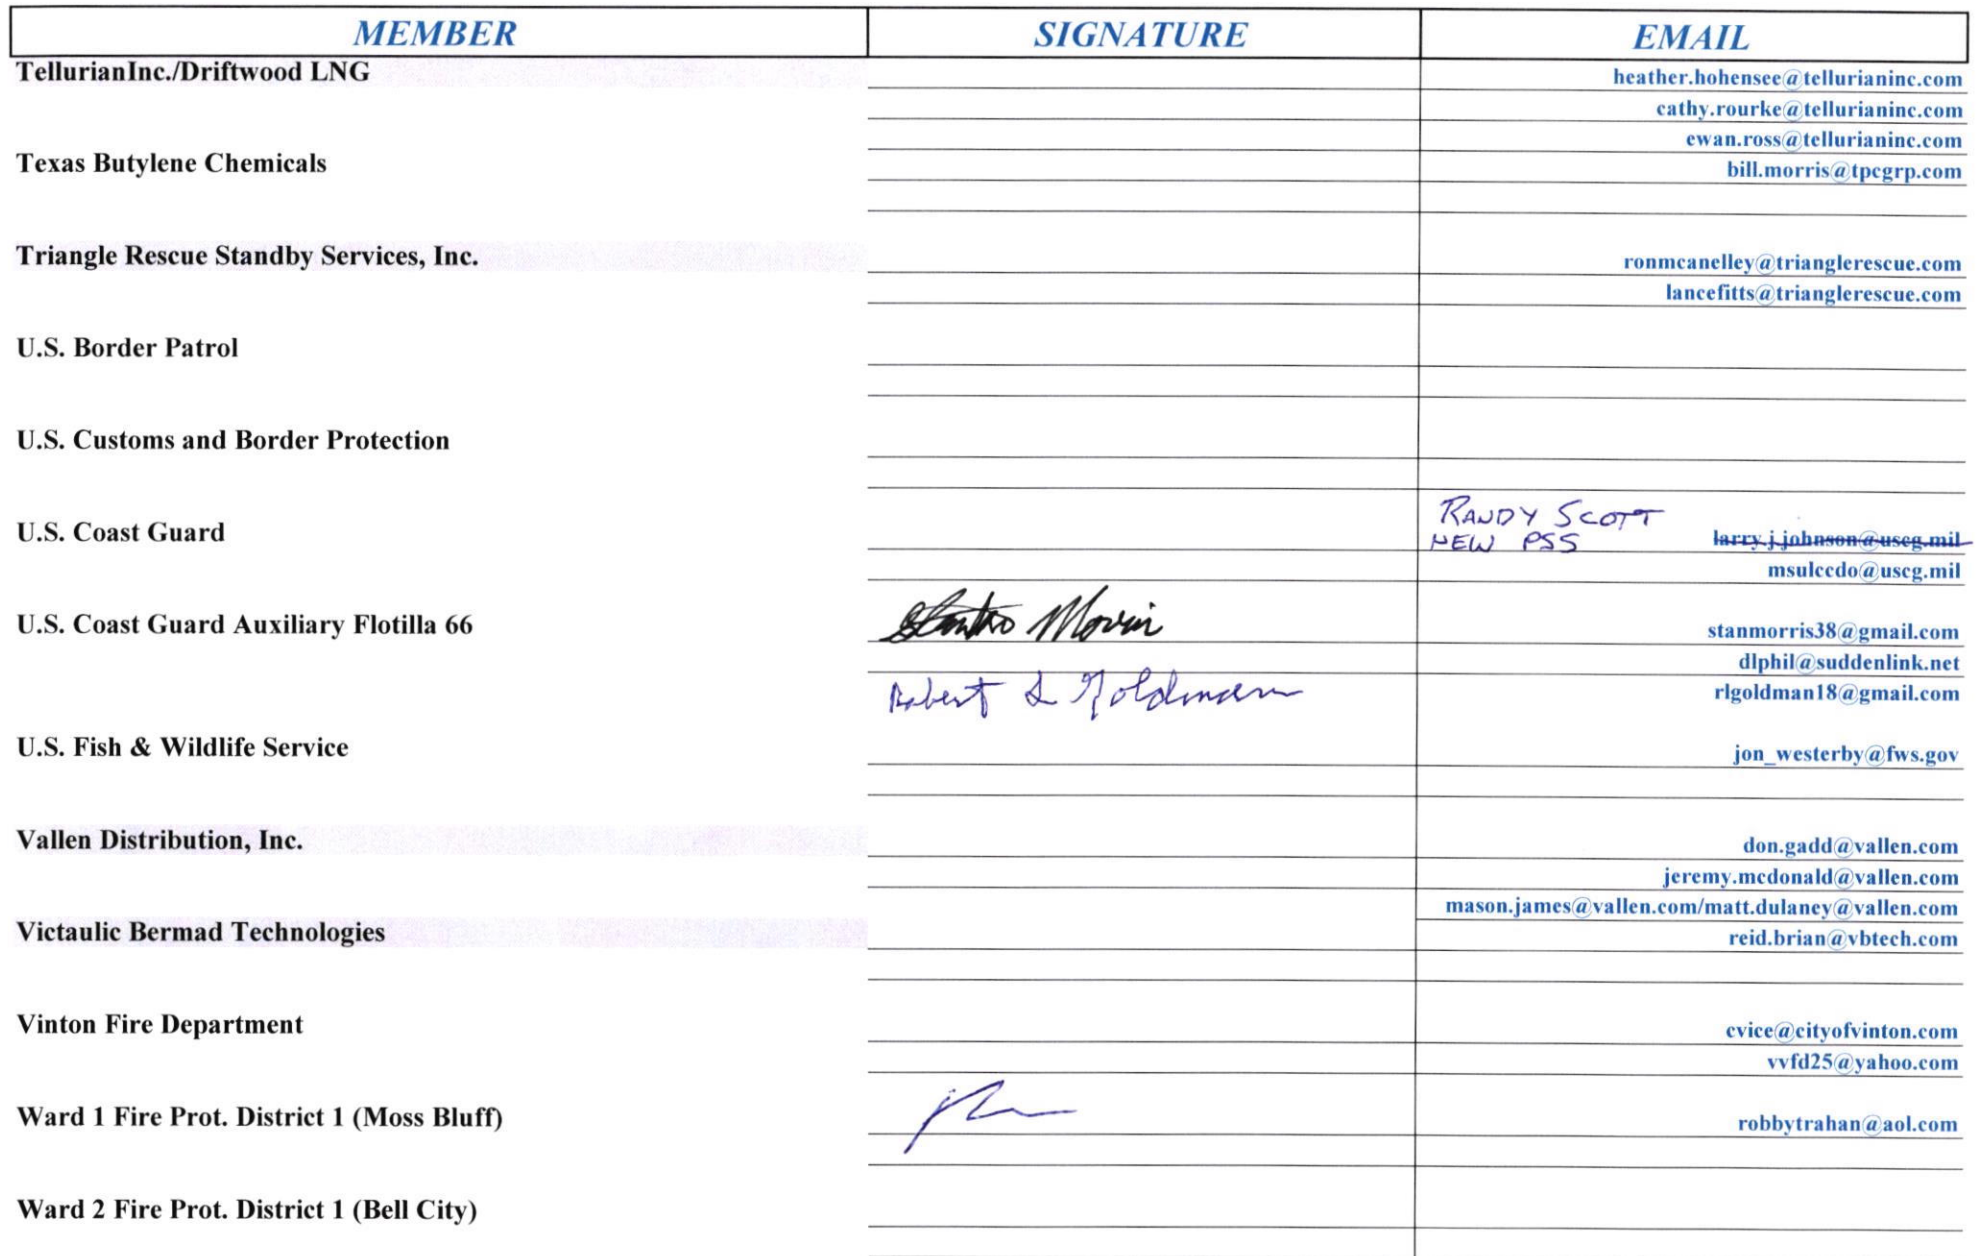 MEMBER SIGNATURE EMAIL
TellurianInc./Driftwood LNG heather.hohensee@tellurianinc.com
cathy.rourke@tellurianinc.com
ewan.ross@tellurianinc.com
Texas Butylene Chemicals bill.morris@tpcgrp.com
Triangle Rescue Standby Services, Inc. ronmcanelley@trianglerescue.com
lancefitts@trianglerescue.com
U.S. Border Patrol
U.S. Customs and Border Protection
RANDY SCOTT
U.S. Coast Guard NEW PSS larry.j.johnson@uscg.mil
msulccdo@uscg.mil
U.S. Coast Guard Auxiliary Flotilla 66 stanmorris38@gmail.com
dlphil@suddenlink.net
Robert L Goldman rlgoldman18@gmail.com
U.S. Fish & Wildlife Service jon_westerby@fws.gov
Vallen Distribution, Inc. don.gadd@vallen.com
jeremy.mcdonald@vallen.com
mason.james@vallen.com/matt.dulaney@vallen.com
Victaulic Bermad Technologies reid.brian@vbtech.com
Vinton Fire Department cvice@cityofvinton.com
vvfd25@yahoo.com
Ward 1 Fire Prot. District 1 (Moss Bluff) robbytrahan@aol.com
Ward 2 Fire Prot. District 1 (Bell City)